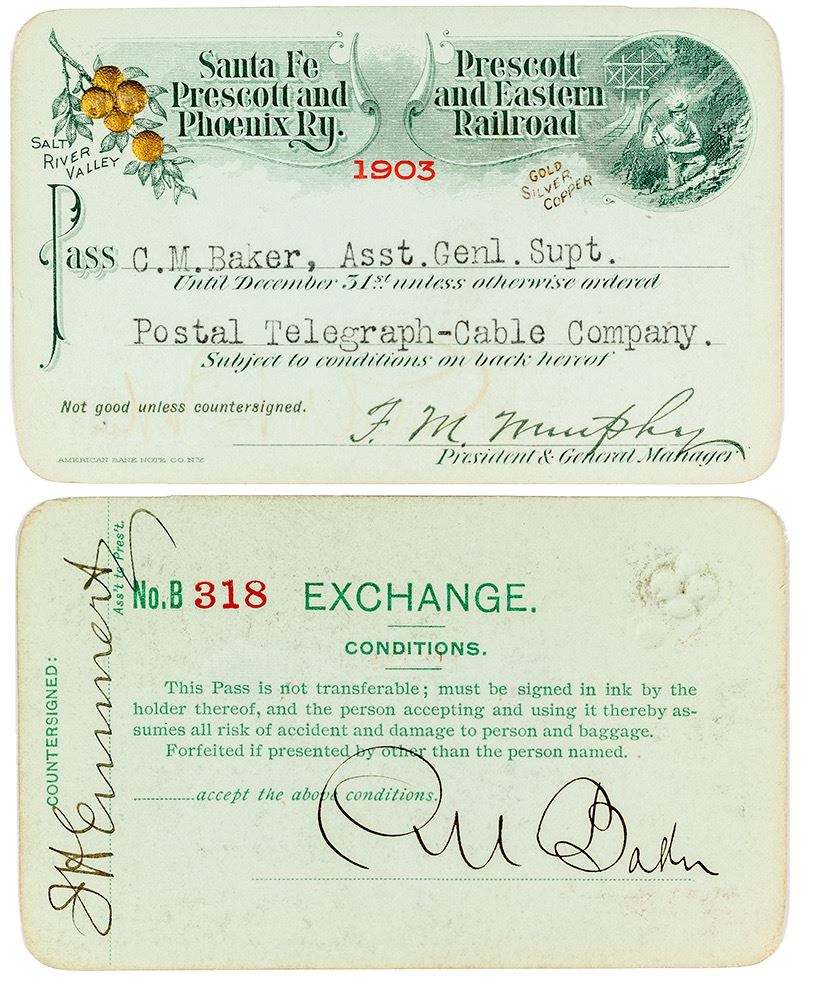 Santa Fe
Prescott and
Phoenix Ry.
Prescott
and Eastern
Railroad
SALT
RIVER
VALLEY
1903
GOLD
SILVER
COPPER
Pass C.M.Baker, Asst.Genl.Supt.
Until December 31st unless otherwise ordered
Postal Telegraph-Cable Company.
Subject to conditions on back hereof
Not good unless countersigned.
F. M. Murphy
President & General Manager
AMERICAN BANK NOTE CO. N.Y.
COUNTERSIGNED:
Ass't to Pres't.
No.B 318 EXCHANGE.
CONDITIONS.
This Pass is not transferable; must be signed in ink by the
holder thereof, and the person accepting and using it thereby as-
sumes all risk of accident and damage to person and baggage.
Forfeited if presented by other than the person named.
..........accept the above conditions.
C M Baker